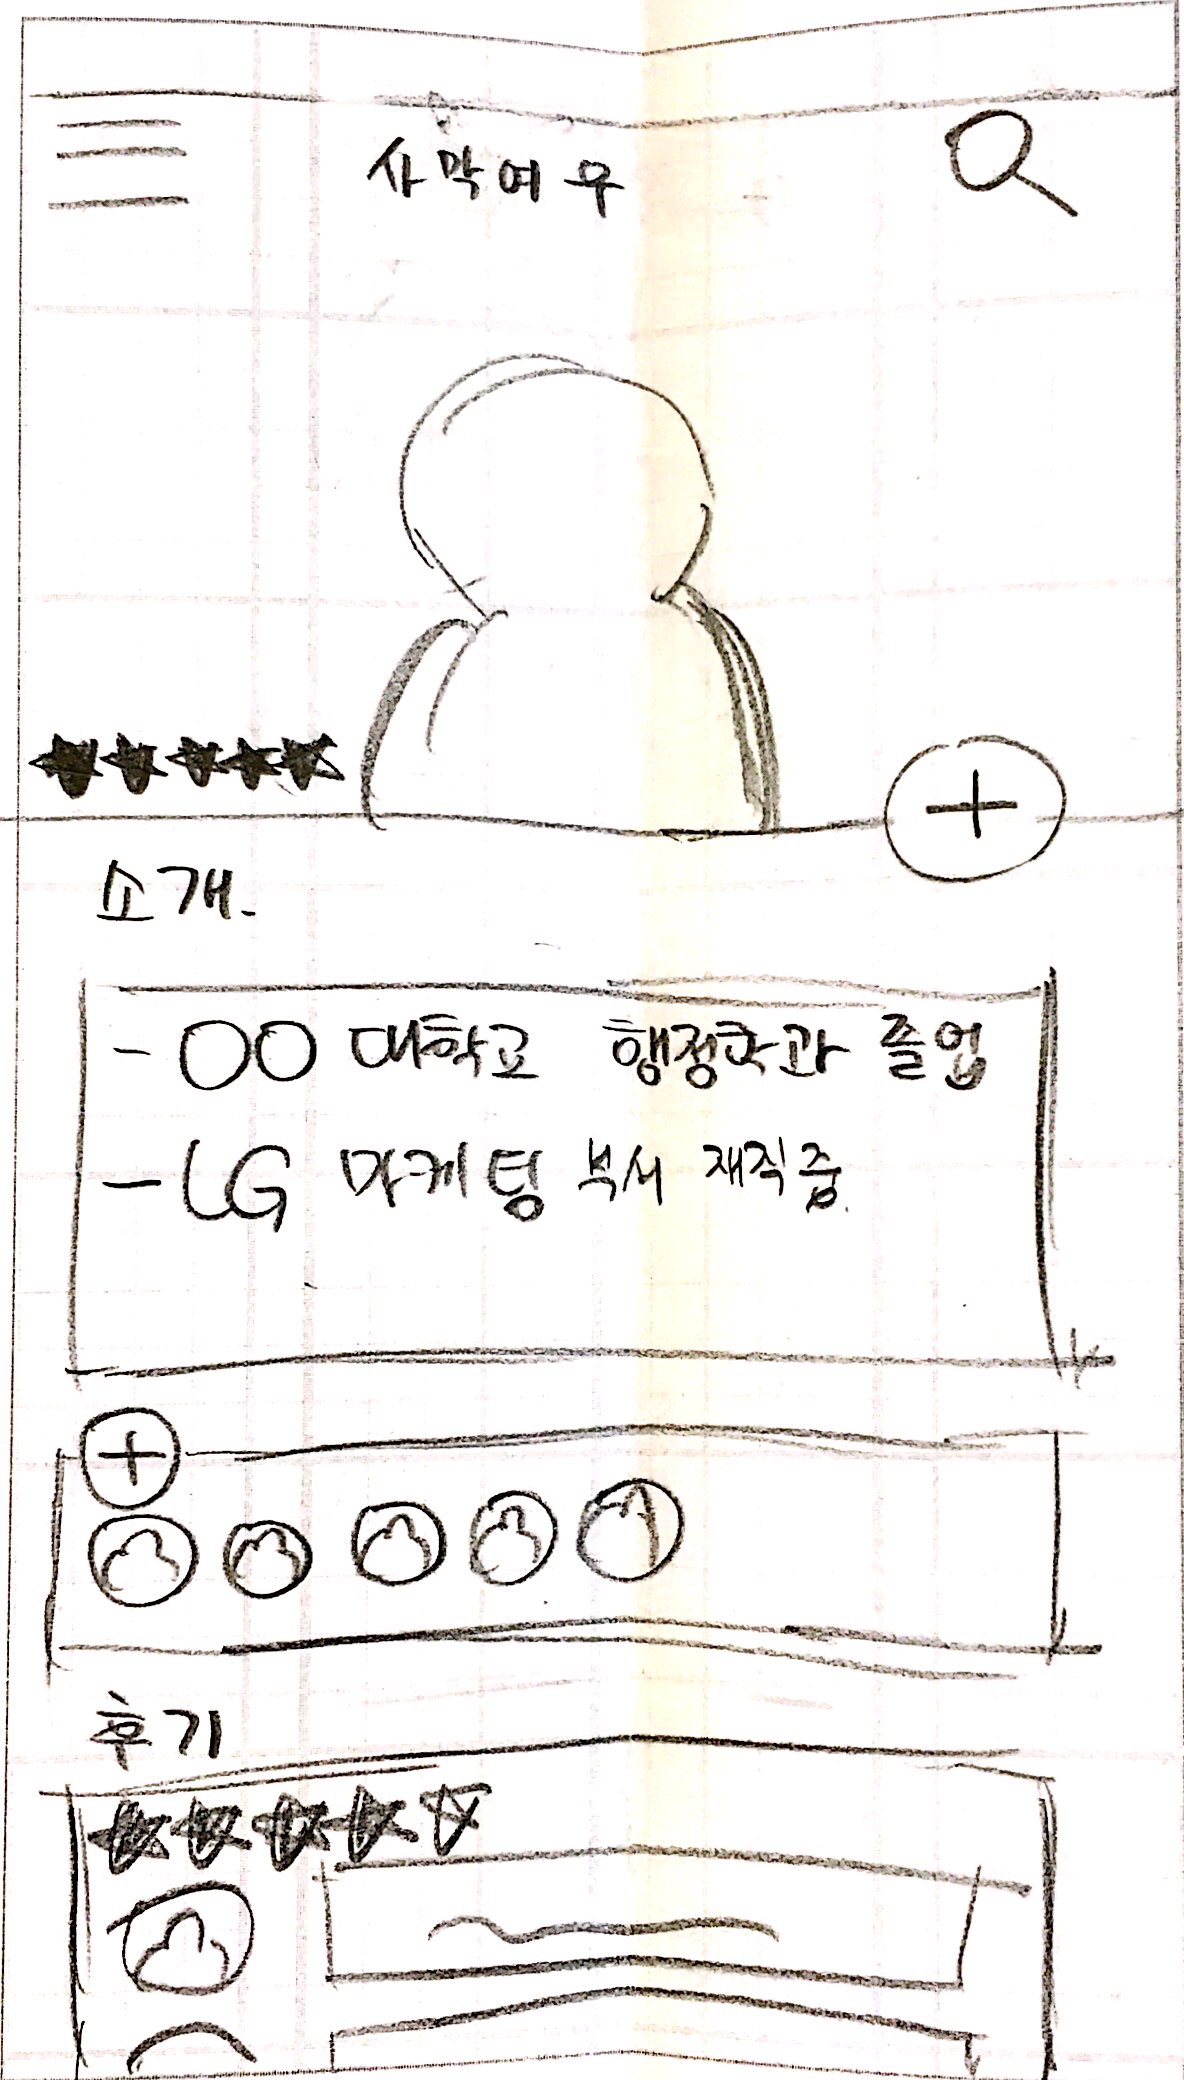 사막여우
소개.
- OO 대학교 행정학과 졸업
- LG 마케팅 부서 재직중.
후기